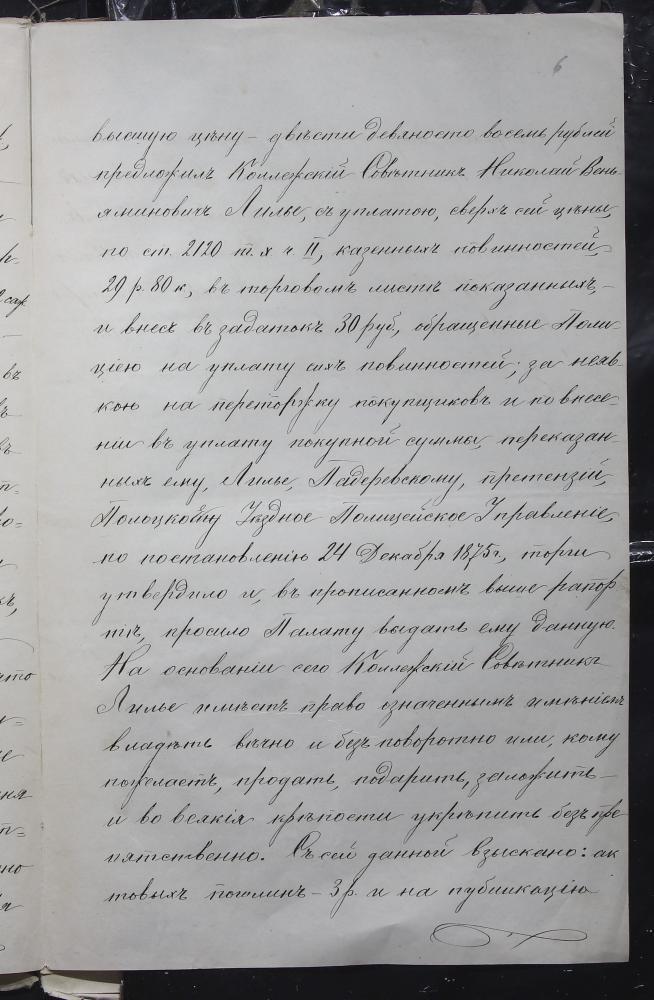 6
высшую цѣну – двѣсти девяносто восемь рублей
предложилъ Коллежскій Совѣтникъ Николай Вень-
яминовичъ Лилье, съ уплатою, сверхъ сей цѣны,
по ст. 2120 т. X ч. II, казенныхъ повинностей,
29 р. 80 к., въ торговомъ листѣ показанныхъ, –
и внесъ въ задатокъ 30 руб., обращенные Поли-
ціею на уплату сихъ повинностей; за неяв-
кою на переторжку покупщиковъ и по внесе-
ніи въ уплату покупной суммы, переказан-
ныхъ ему, Лилье, Падеревскому, претензій,
Полоцкое Уѣздное Полицейское Управленіе,
по постановленію 24 Декабря 1875 г., торги
утвердило и, въ прописанномъ выше рапор-
тѣ, просило Палату выдать ему данную.
На основаніи сего Коллежскій Совѣтникъ
Лилье имѣетъ право означеннымъ имѣніемъ
владѣть вѣчно и безповоротно или, кому
пожелаетъ, продать, подарить, заложить –
и во всякія крѣпости укрѣпить безъ пре-
пятственно. Съ сей данной взыскано: ак
товыхъ пошлинъ – 3 р. и на публикацію